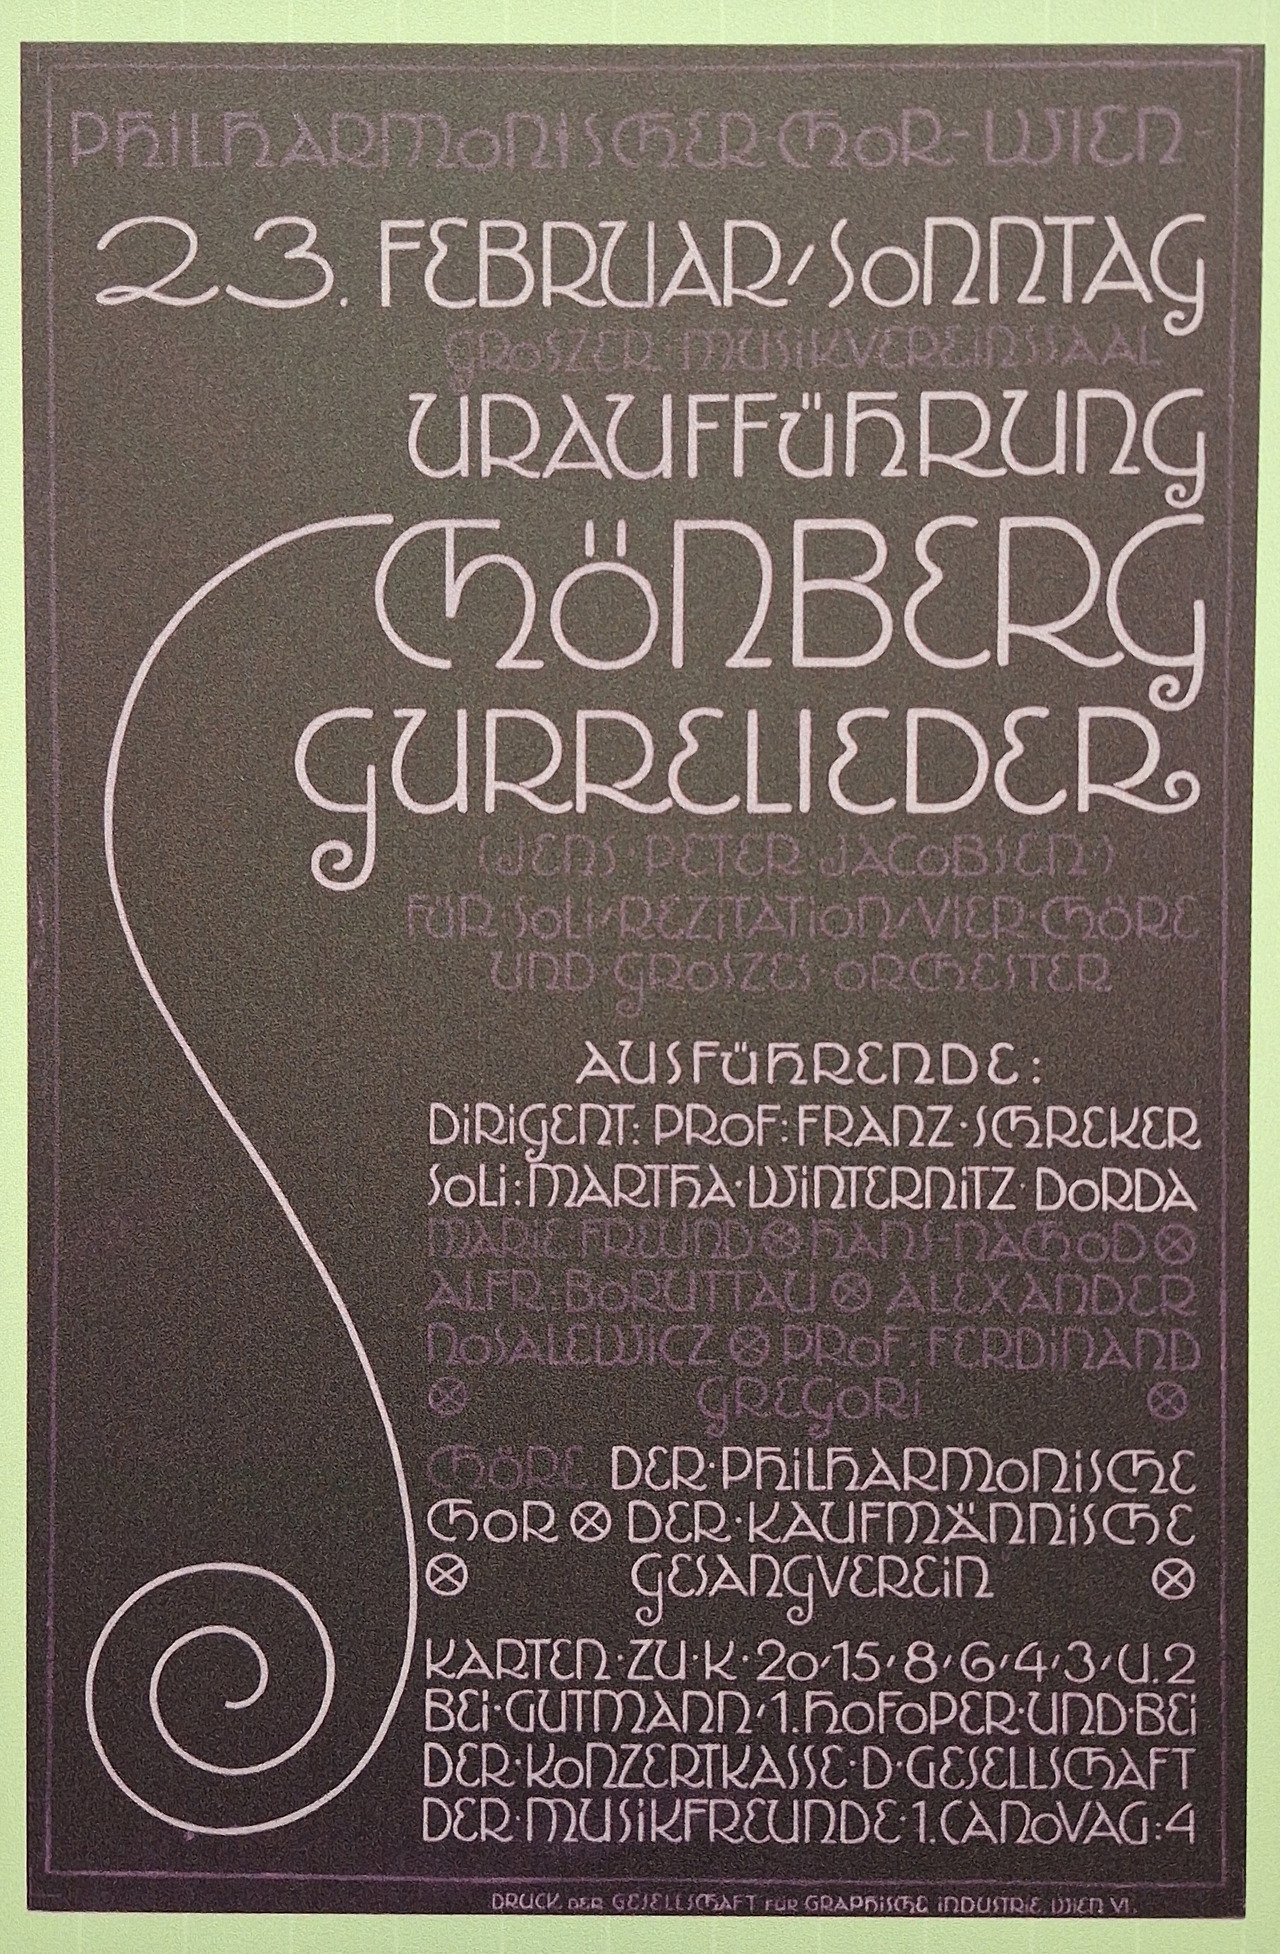 PHILHARMONISCHER·CHOR-WIEN-
23. FEBRUAR/SONNTAG
GROSZER·MUSIKVEREINSSAAL
URAUFFÜHRUNG
SCHÖNBERG
GURRELIEDER
(JENS·PETER·JACOBSEN)
FÜR·SOLI/REZITATION/VIER·CHÖRE
UND·GROSZES·ORCHESTER
AUSFÜHRENDE:
DIRIGENT: PROF: FRANZ·SCHREKER
SOLI: MARTHA·WINTERNITZ·DORDA
MARIE FREUND ⊗ HANS·NACHOD ⊗
ALFR·BORUTTAU ⊗ ALEXANDER
NOSALEWICZ ⊗ PROF: FERDINAND
⊗ GREGORI ⊗
CHÖRE DER·PHILHARMONISCHE
CHOR ⊗ DER·KAUFMÄNNISCHE
⊗ GESANGVEREIN ⊗
KARTEN·ZU·K·20/15/8/6/4/3/U.2
BEI·GUTMANN/1.HOFOPER·UND·BEI
DER·KONZERTKASSE·D·GESELLSCHAFT
DER·MUSIKFREUNDE·1.CANOVAG:4
DRUCK DER GESELLSCHAFT FÜR GRAPHISCHE INDUSTRIE, WIEN VI.